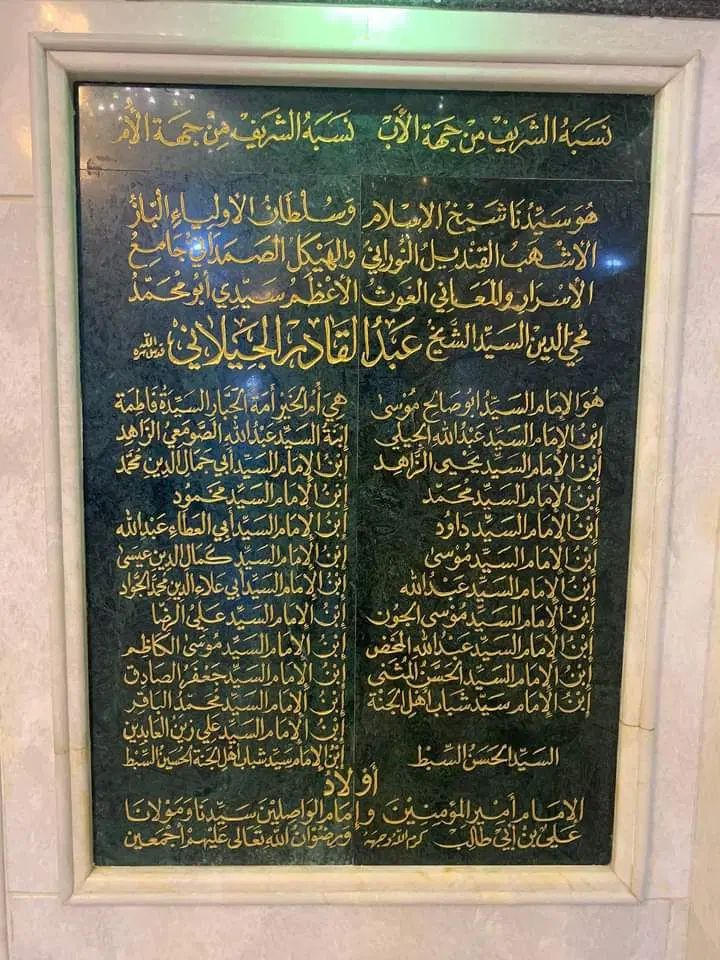 نَسَبَهُ الشَّرِيفْ مِنْ جِهَةِ الأَبْ نَسَبَهُ الشَّرِيفْ مِنْ جِهَةِ الأُمْ
هُوَ سَيِّدُنَا شَيْخُ الإِسْلَامِ وَسُلْطَانُ الأَوْلِيَاءِ البَازُ
الأَشْهَبُ القِنْدِيلُ النُّورَانِيُّ وَالهَيْكَلُ الصَّمَدَانِيُّ جَامِعُ
الأَسْرَارِ وَالمَعَانِي الغَوْثُ الأَعْظَمُ سَيِّدِي أَبُو مُحَمَّدْ
مُحْيِي الدِّينِ السَّيِّدُ الشَّيْخُ عَبْدُ القَادِرِ الجِيلَانِي قدس الله سره
هُوَ الإِمَامُ السَّيِّدُ أَبُو صَالِحْ مُوسَى
ابْنُ الإِمَامِ السَّيِّدِ عَبْدُ اللهِ الجِيلِي
ابْنُ الإِمَامِ السَّيِّدِ يَحْيَى الزَّاهِدْ
ابْنُ الإِمَامِ السَّيِّدِ مُحَمَّدْ
ابْنُ الإِمَامِ السَّيِّدِ دَاوُدْ
ابْنُ الإِمَامِ السَّيِّدِ مُوسَى
ابْنُ الإِمَامِ السَّيِّدِ عَبْدُ اللهِ
ابْنُ الإِمَامِ السَّيِّدِ مُوسَى الجَوْنِ
ابْنُ الإِمَامِ السَّيِّدِ عَبْدُ اللهِ المَحْضِ
ابْنُ الإِمَامِ السَّيِّدِ الحَسَنُ المُثَنَّى
ابْنُ الإِمَامِ سَيِّدِ شَبَابِ أَهْلِ الجَنَّةِ
السَّيِّدِ الحَسَنُ السِّبْطْ
هِيَ أُمُّ الخَيْرِ أَمَةُ الجَبَّارِ السَّيِّدَةُ فَاطِمَةُ
ابْنَةُ السَّيِّدِ عَبْدُ اللهِ الصَّوْمَعِي الزَّاهِدْ
ابْنُ الإِمَامِ السَّيِّدِ أَبِي جَمَالِ الدِّينِ مُحَمَّدْ
ابْنُ الإِمَامِ السَّيِّدِ مَحْمُودْ
ابْنُ الإِمَامِ السَّيِّدِ أَبِي العَطَاءِ عَبْدُ اللهِ
ابْنُ الإِمَامِ السَّيِّدِ كَمَالِ الدِّينِ عِيسَى
ابْنُ الإِمَامِ السَّيِّدِ أَبِي عَلَاءِ الدِّينِ مُحَمَّدُ الجَوَّادْ
ابْنُ الإِمَامِ السَّيِّدِ عَلِيُّ الرِّضَا
ابْنُ الإِمَامِ السَّيِّدِ مُوسَى الكَاظِمْ
ابْنُ الإِمَامِ السَّيِّدِ جَعْفَرُ الصَّادِقْ
ابْنُ الإِمَامِ السَّيِّدِ مُحَمَّدُ البَاقِرْ
ابْنُ الإِمَامِ السَّيِّدِ عَلِي زَيْنُ العَابِدِينْ
ابْنُ الإِمَامِ سَيِّدِ شَبَابِ أَهْلِ الجَنَّةِ الحُسَيْنُ السِّبْطْ
أَوْلَادْ
الإِمَامِ أَمِيرِ المُؤْمِنِينَ وَإِمَامِ الوَاصِلِينَ سَيِّدِنَا وَمَوْلَانَا
عَلِيِّ بْنِ أَبِي طَالِبْ كَرَّمَ اللهُ وَجْهَهُ وَرِضْوَانُ اللهِ تَعَالَى عَلَيْهِمْ أَجْمَعِينْ